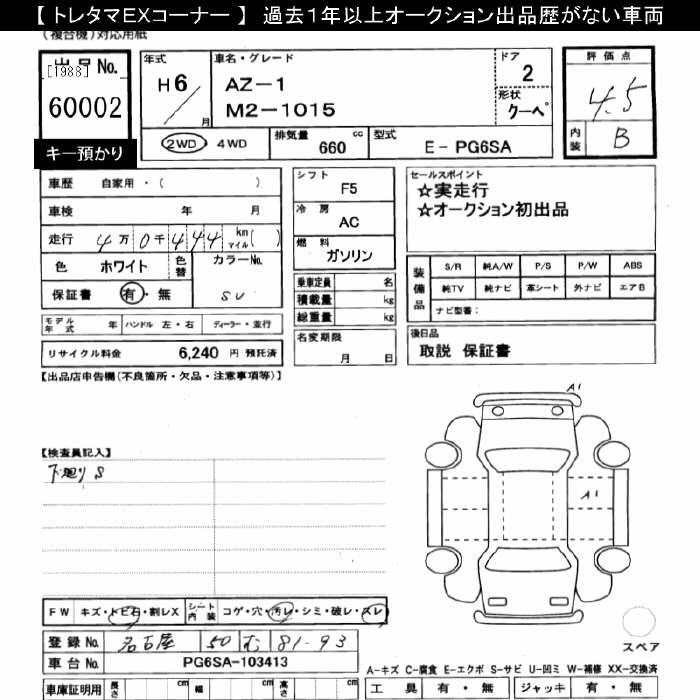 【トレタマEXコーナー】 過去1年以上オークション出品歴がない車両
(複合機)対応用紙
出品No.
[1988]
60002
キー預かり
年式
H6
月
車名・グレード
AZ-1
M2-1015
ドア
2
形状
クーペ
評価点
4.5
内装
B
2WD ・ 4WD
排気量 660 cc
型式 E-PG6SA
車歴 自家用・( )
車検 年 月
走行 4万0千444 km マイル( )
色 ホワイト 色替 カラーNo.
SU
保証書 有・無
モデル年式 年 ハンドル 左・右 ディーラー・並行
リサイクル料金 6,240 円 預託済
シフト
F5
冷房
AC
燃料
ガソリン
乗車定員 名
積載量 kg
総重量 kg
名変期限
月 日
セールスポイント
☆実走行
☆オークション初出品
装備品
S/R 純A/W P/S P/W ABS
純TV 純ナビ 革シート 外ナビ エアB
ナビ型番:
後日品
取説 保証書
【出品店申告欄(不良箇所・欠品・注意事項等)】
【検査員記入】
下廻りS
A1
A1
スペア
FW キズ・トビ石・割レX シート内装 コゲ・穴・汚レ・シミ・破レ・スレ
登録No. 名古屋 50 む 81-93
車台No. PG6SA-103413
車庫証明用 長さ cm 幅 cm 高さ cm
A-キズ C-腐食 E-エクボ S-サビ U-凹ミ W-補修 XX-交換済
工具 有・無 ジャッキ 有・無